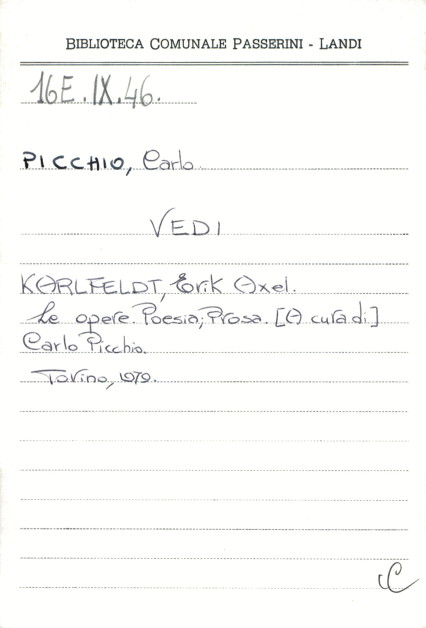 BIBLIOTECA COMUNALE PASSERINI - LANDI
16E.IX.46.
PICCHIO, Carlo
VEDI
KARLFELDT, Erik Axel.
Le opere. Poesia; Prosa. [A cura di]
Carlo Picchio.
Torino, 1979.
C